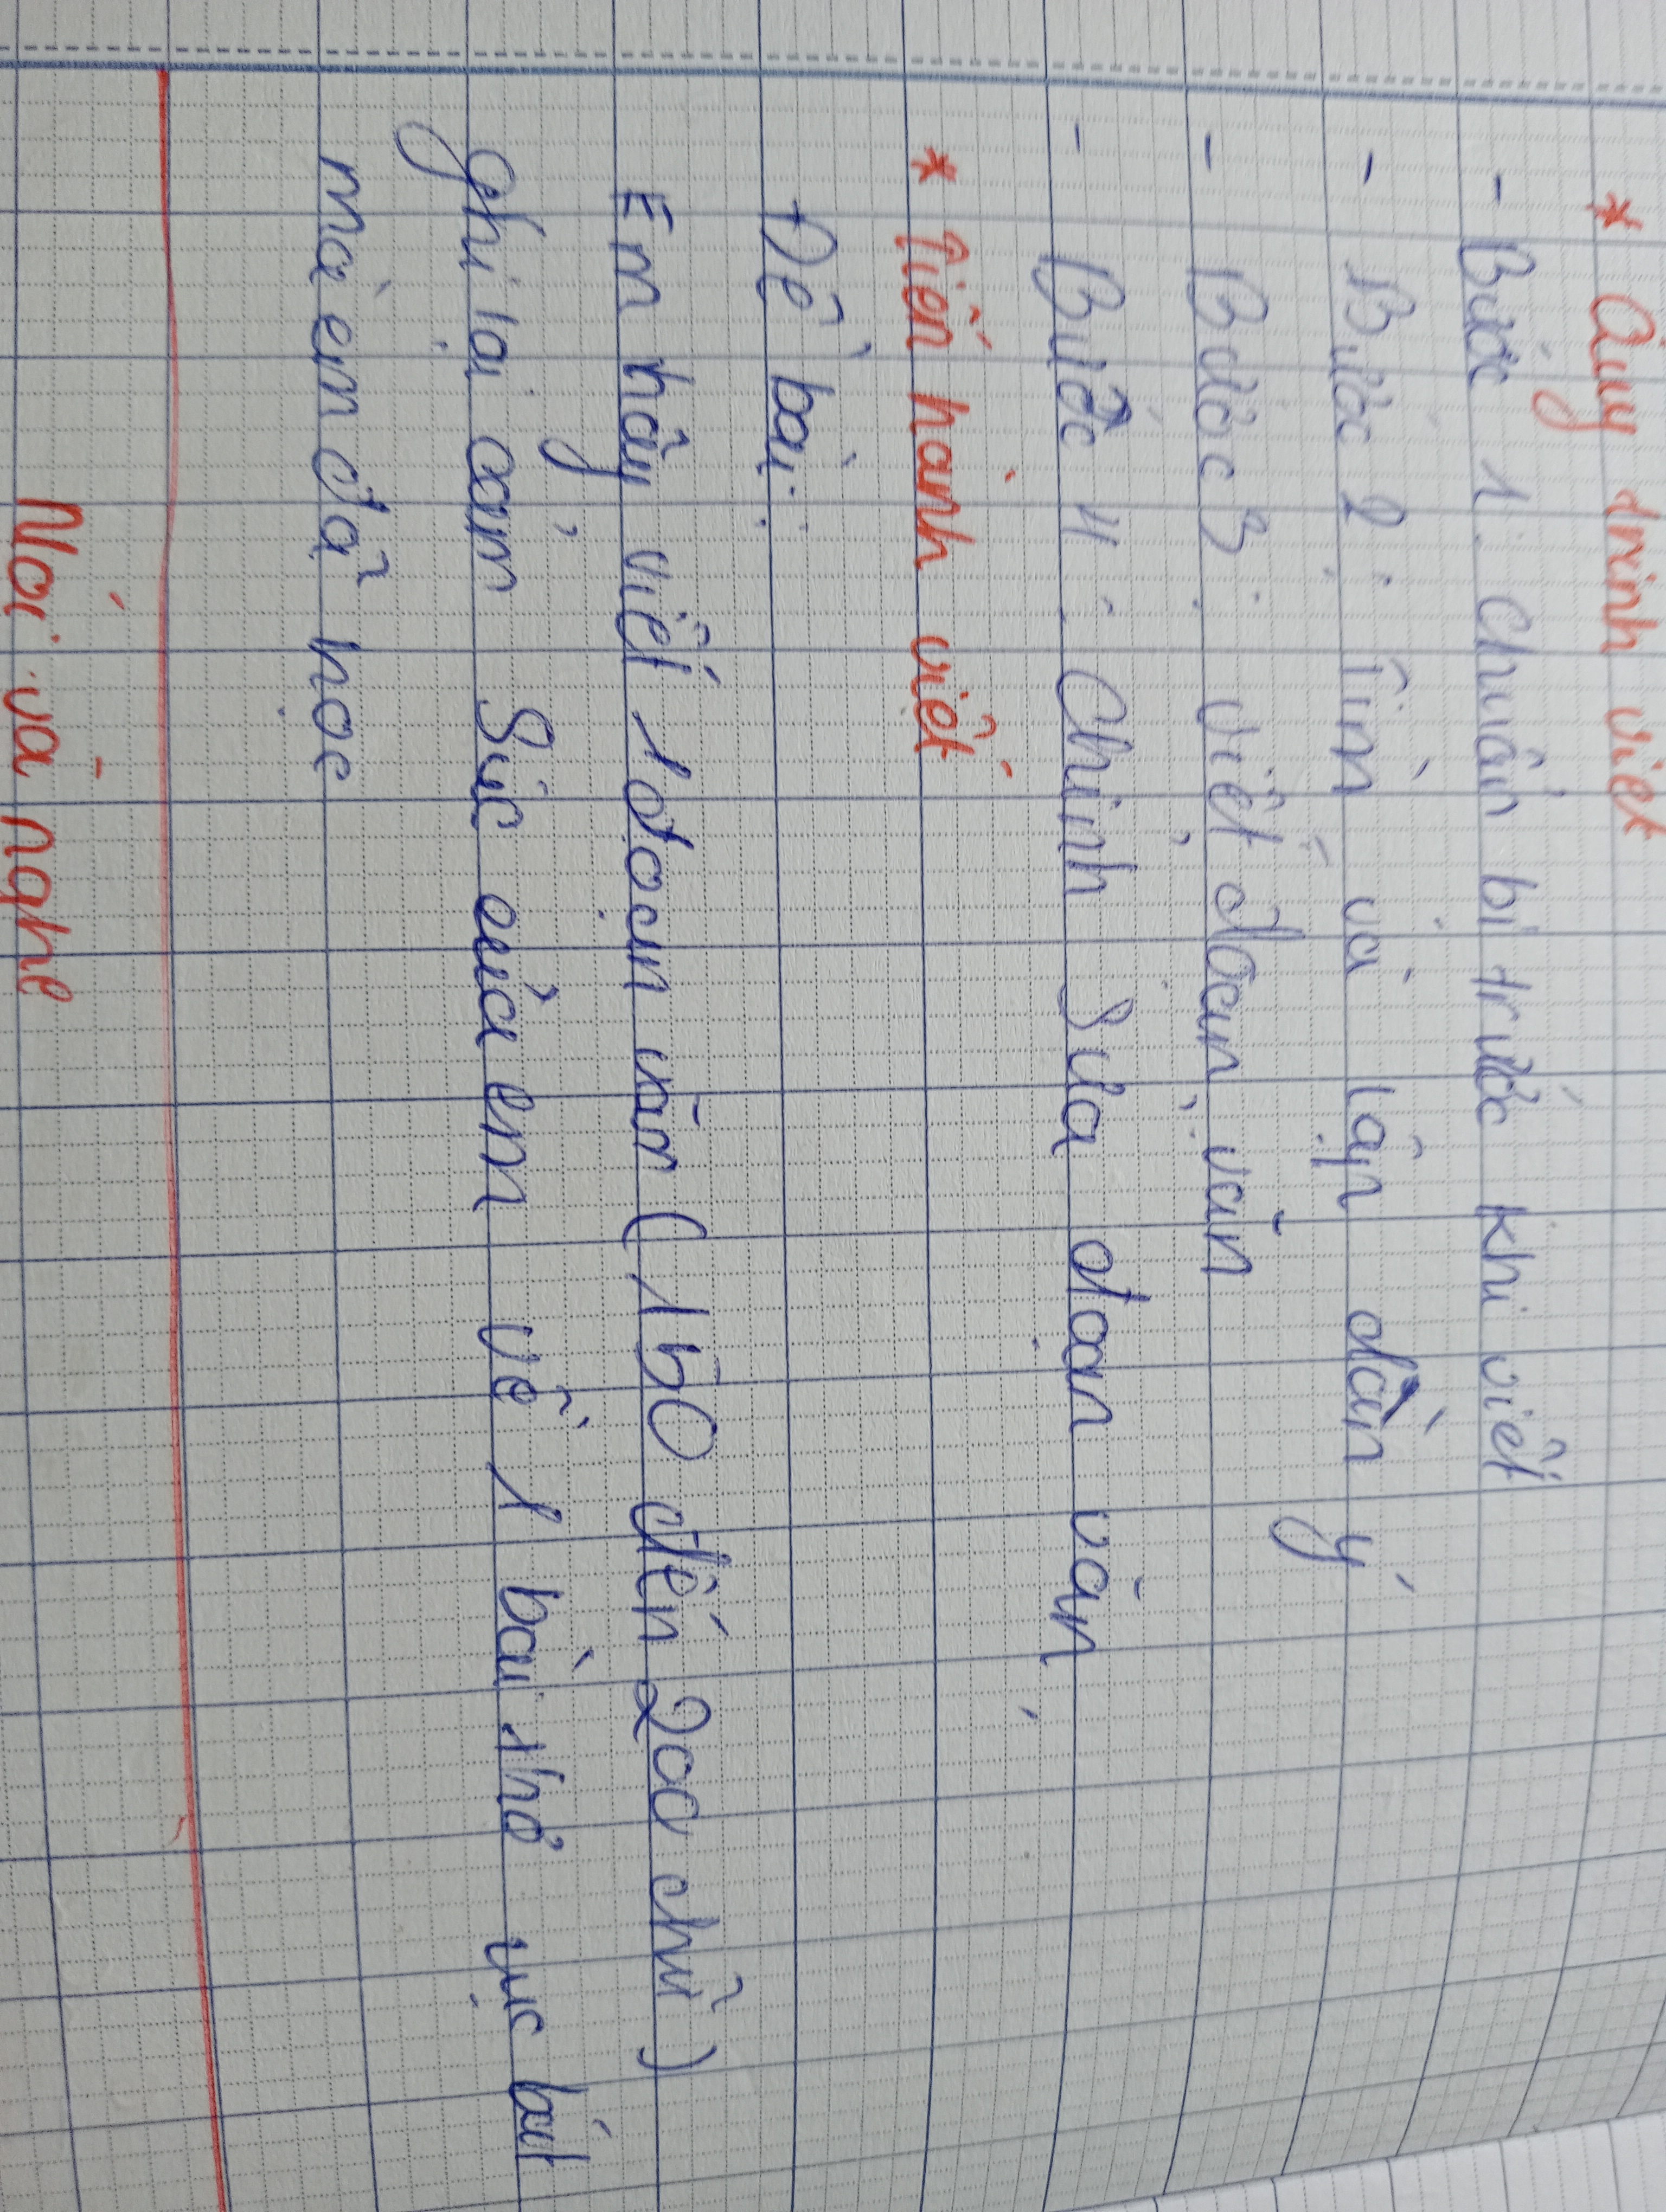 * Quy trình viết
- Bước 1: Chuẩn bị trước khi viết
- Bước 2: Tìm và lập dần ý
- Bước 3: viết đoạn văn
- Bước 4: Chỉnh sửa đoạn văn
* Tiến hành viết
Đề bài:
Em hãy viết 1 đoạn văn (150 đến 200 chữ)
ghi lại cảm Súc của em về 1 bài thơ lục bát
mà em đã học
Nói và nghe